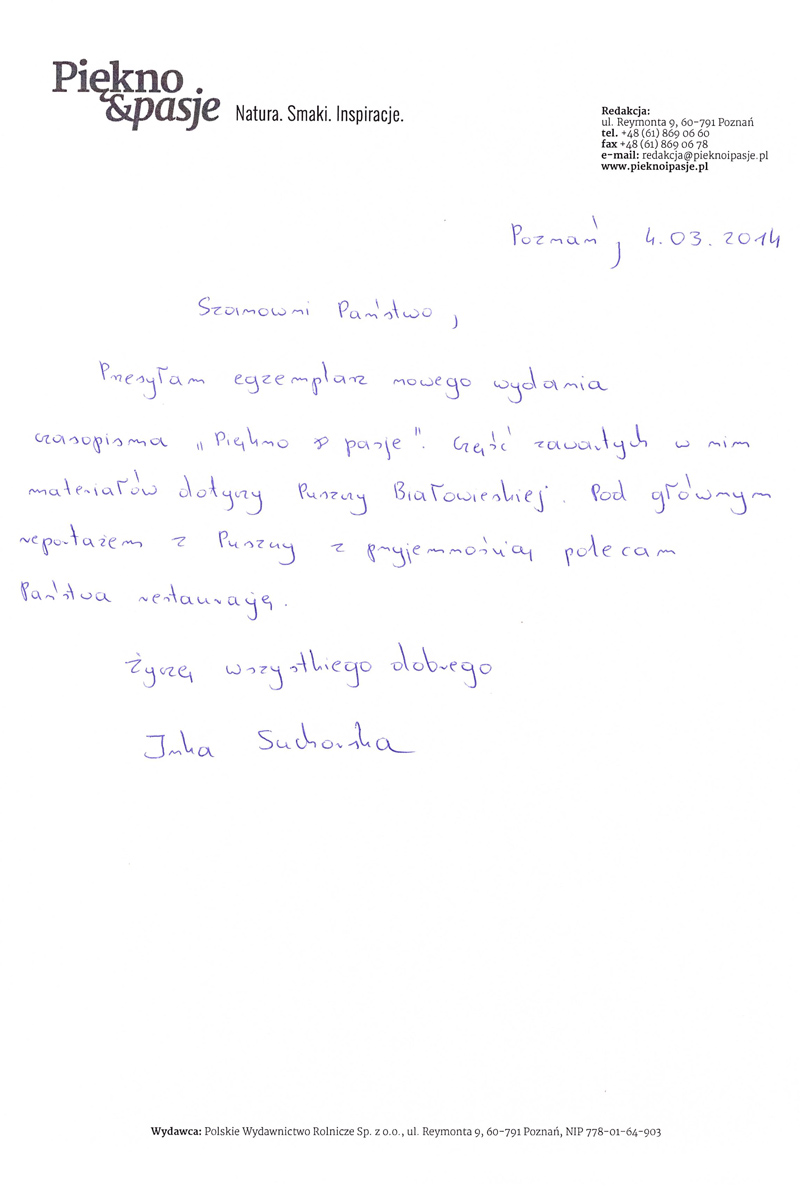 Piękno
&pasje Natura. Smaki. Inspiracje.
Redakcja:
ul. Reymonta 9, 60-791 Poznań
tel. +48 (61) 869 06 60
fax +48 (61) 869 06 78
e-mail: redakcja@pieknoipasje.pl
www.pieknoipasje.pl
Poznań, 4.03.2014
Szanowni Państwo,
Przesyłam egzemplarz nowego wydania
czasopisma „Piękno & pasje". Część zawartych w nim
materiałów dotyczy Puszczy Białowieskiej. Pod głównym
reportażem z Puszczy z przyjemnością polecam
Państwa restaurację.
Życzę wszystkiego dobrego
Inka Suchorska
Wydawca: Polskie Wydawnictwo Rolnicze Sp. z o.o., ul. Reymonta 9, 60-791 Poznań, NIP 778-01-64-903